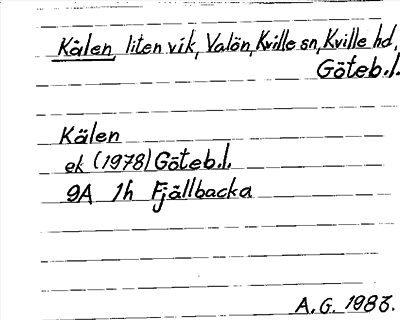 Kälen, liten vik, Valön, Kville sn, Kville hd,
Göteb.l.
Kälen
ek (1978) Göteb.l.
9A 1h Fjällbacka
A.G. 1983.